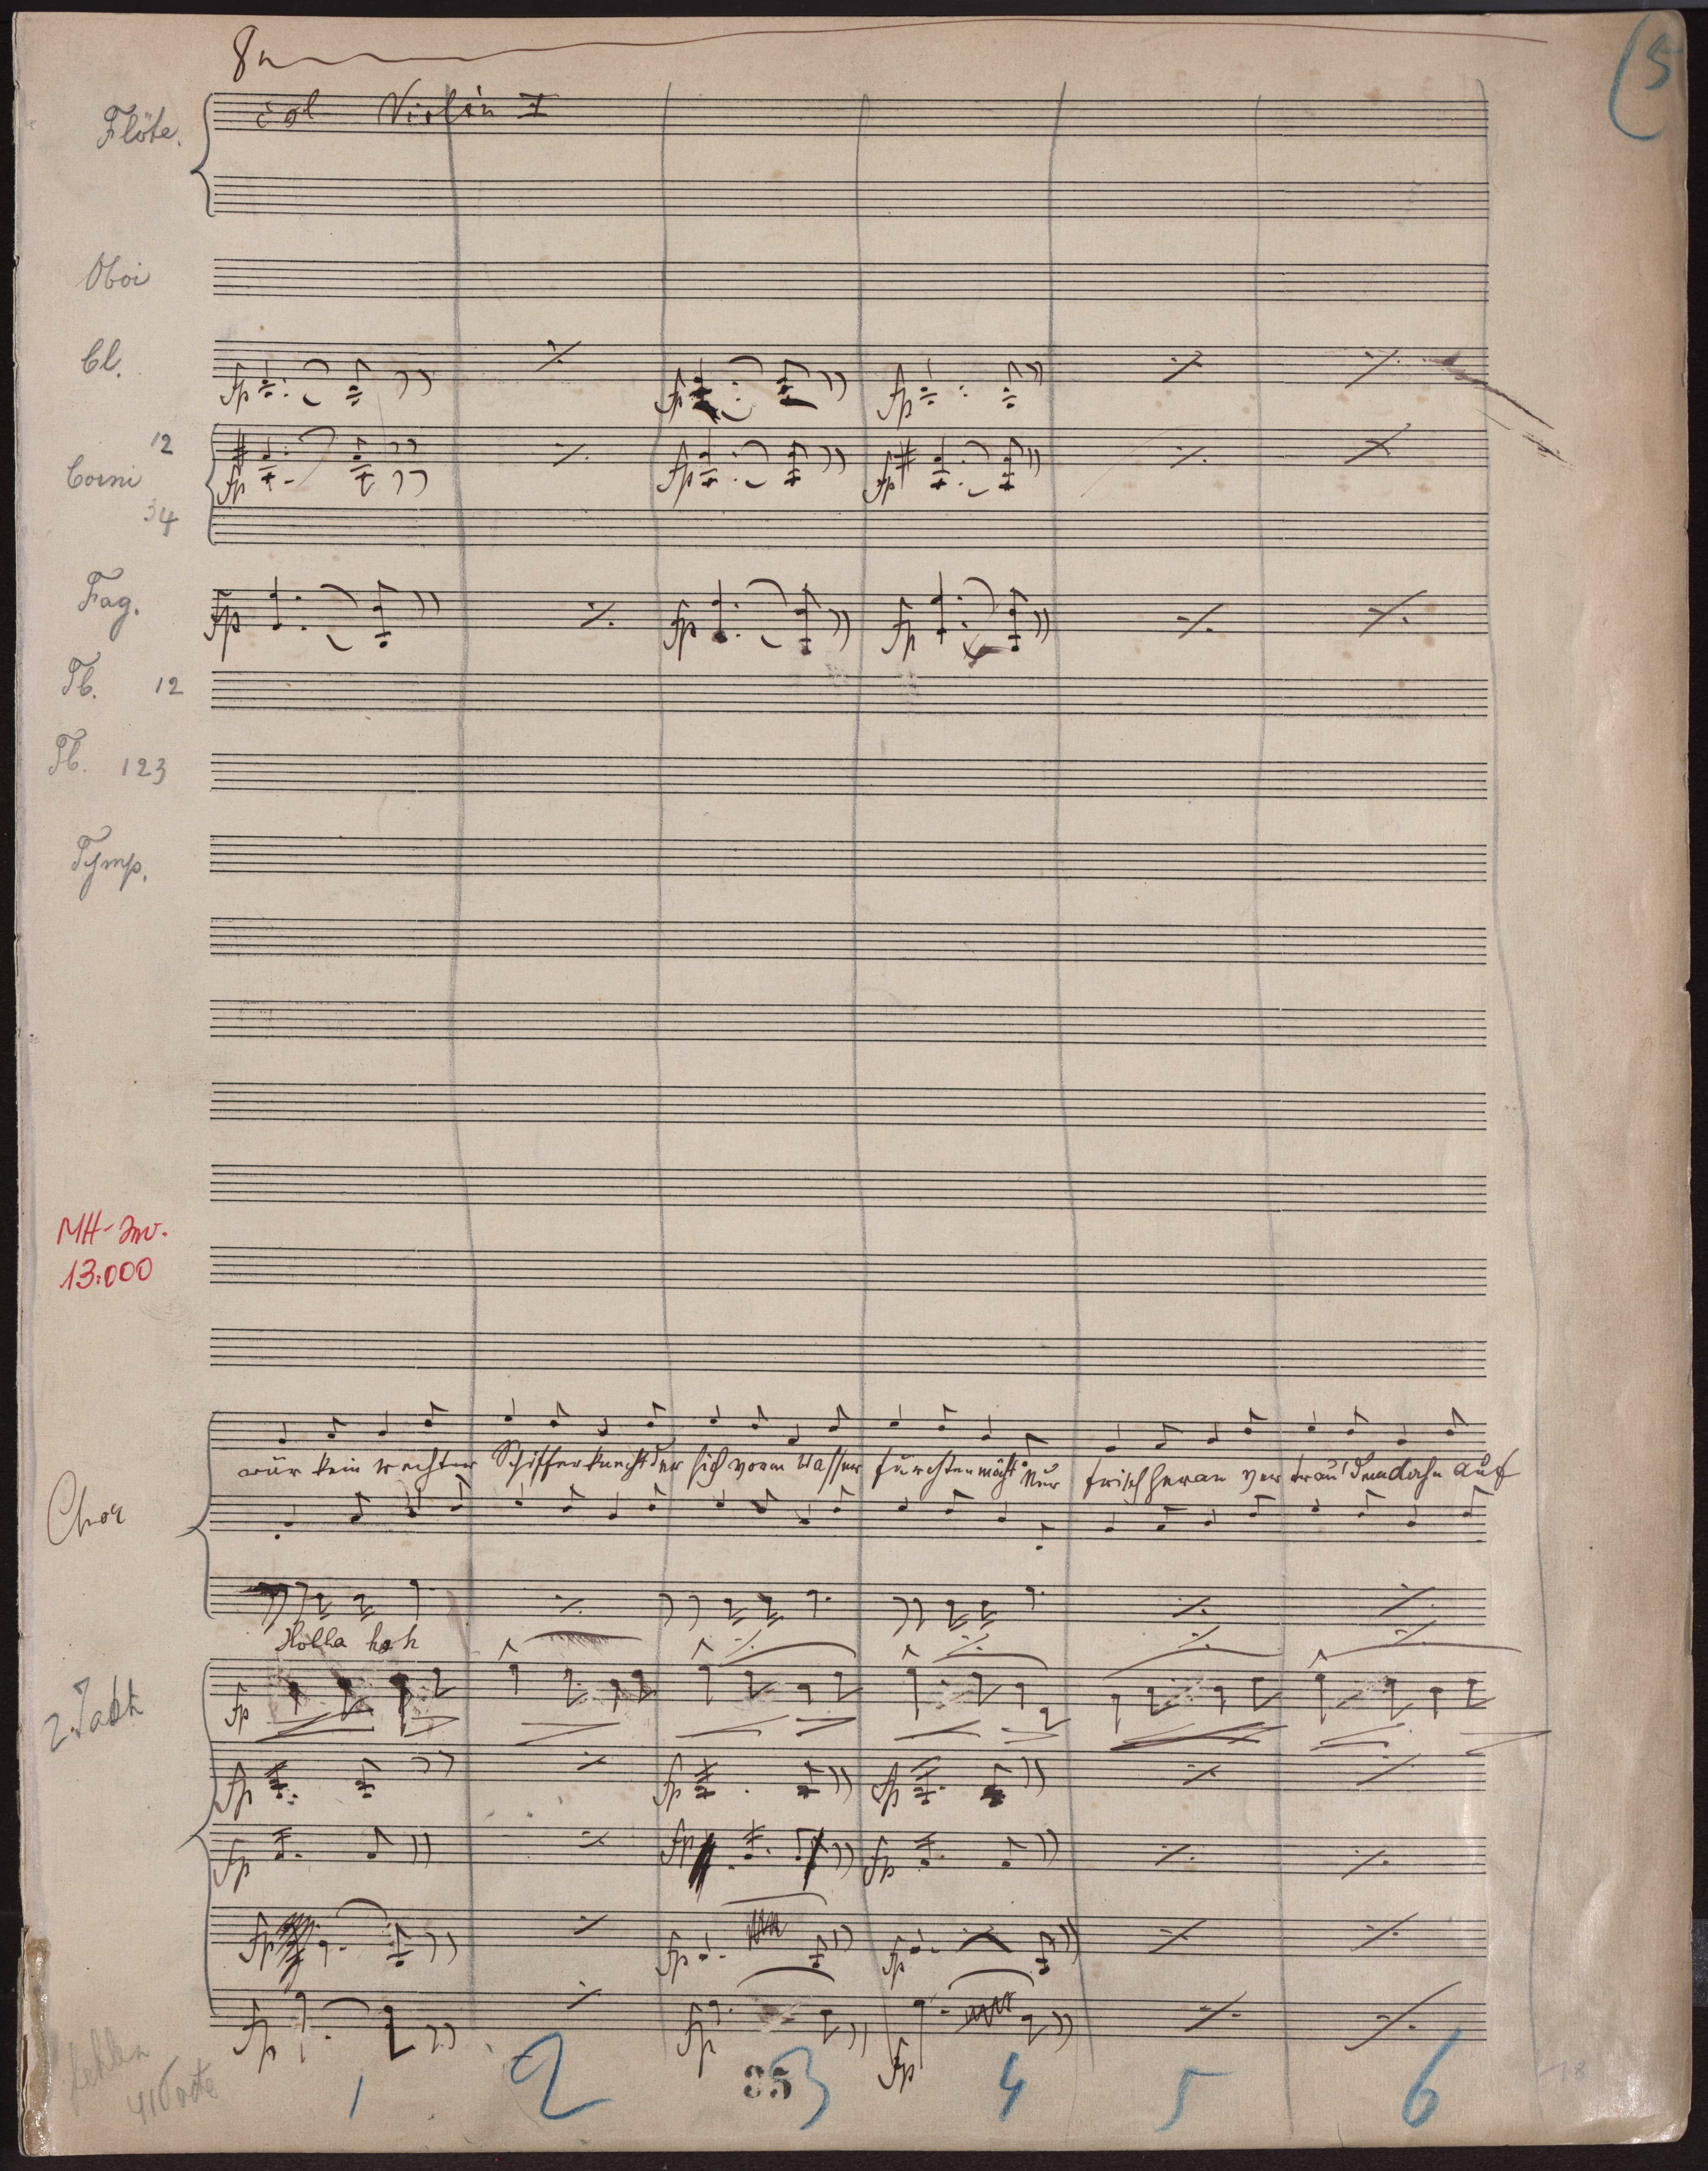 8va
(5
Flöte. col Violin I
Oboi
Cl. fp fp fp
12
Corni fp fp fp
34
Fag. fp fp fp
Tb. 12
Tb. 123
Tymp.
MH-Inv.
13.000
wär kein rechter Schifferknecht der sich vorm Wasser fürchten möcht Nur frisch heran ver trau' dem auf
Chor
Holla hoh
2. Takt fp
fp fp fp
fp fp fp
fp fp fp
fp fp fp
fehlen
41 Takte
1 2 35 3 4 5 6
18